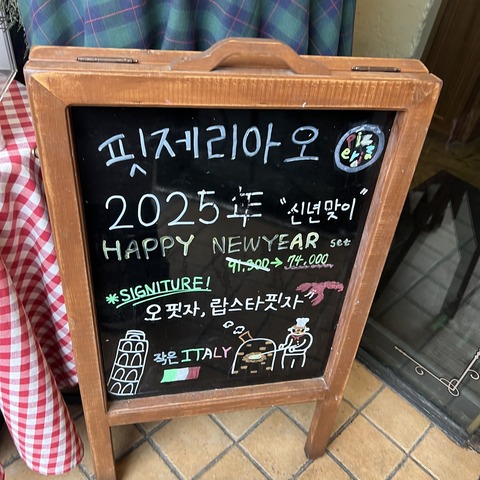 핏제리아 오
Pizzeria
2025年 "신년맞이"
HAPPY NEWYEAR set
91,900 → 74,000
*SIGNITURE!
오핏자, 랍스타핏자
작은 ITALY